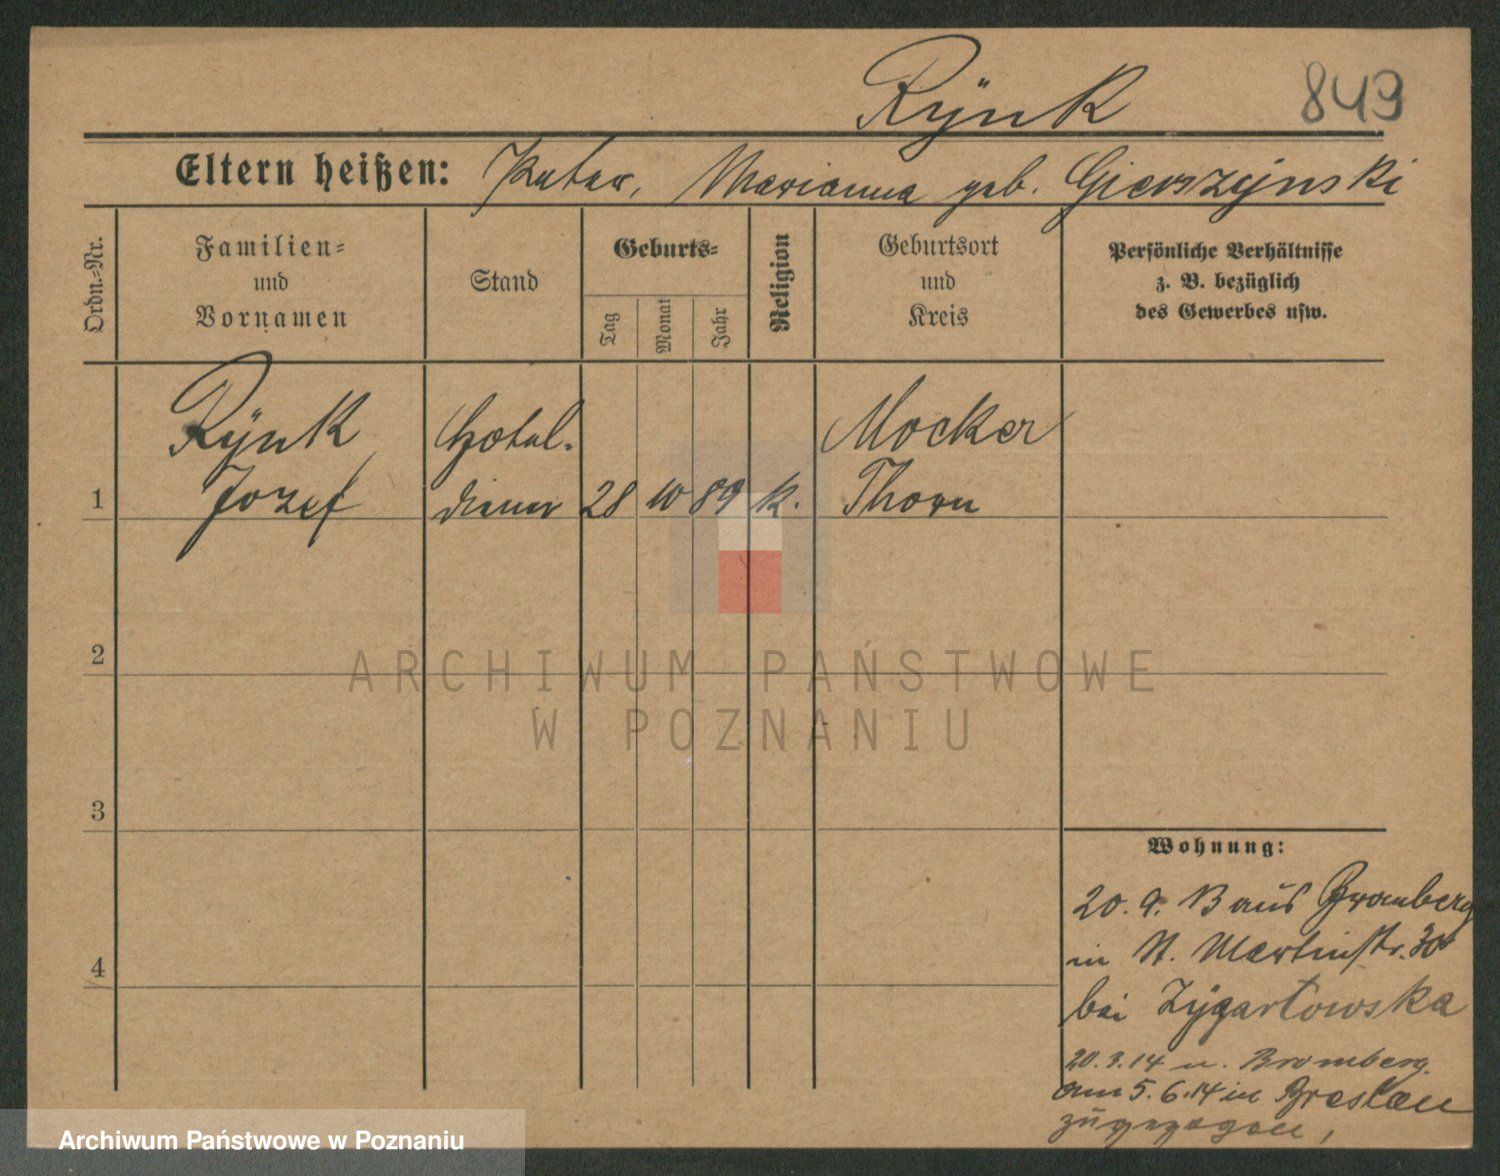 Rÿnk 849
Eltern heißen: Peter, Marianna geb. Gierszÿnski
Ordn.-Nr.
Familien-
und
Vornamen
Stand
Geburts-
Tag
Monat
Jahr
Religion
Geburtsort
und
Kreis
Persönliche Verhältnisse
z. B. bezüglich
des Gewerbes usw.
Rÿnk Hotel- Mocker
1 Jozef diener 28 10 89 k. Thorn
2
3
4
Wohnung:
20. 9. 13 aus Bromberg
in St. Martinstr. 30
bei Zÿgartowska
20. 3. 14 n. Bromberg.
am 5. 6. 14 in Breslau
zugezogen,
ARCHIWUM PAŃSTWOWE
W POZNANIU
Archiwum Państwowe w Poznaniu